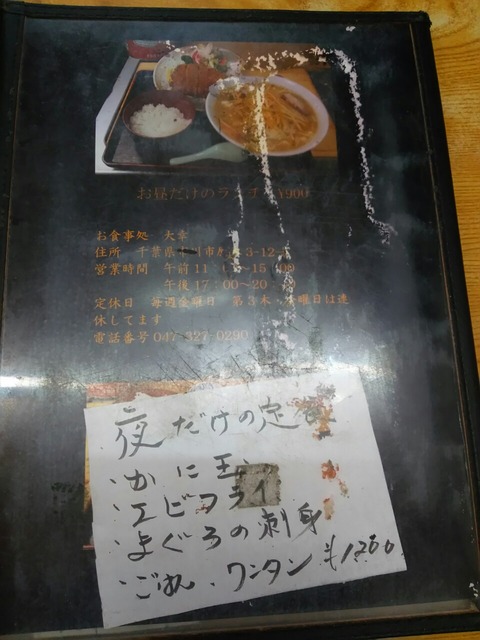 お昼だけのランチ ¥900
お食事処 大幸
住所 千葉県 市 3-12-
営業時間 午前11: ~15:00
午後17:00~20:
定休日 毎週金曜日 第3木・ 曜日は連
休してます
電話番号 047-327-0290
夜だけの定食
・かに玉
・エビフライ
・まぐろの刺身
・ごはん・ワンタン ¥1200